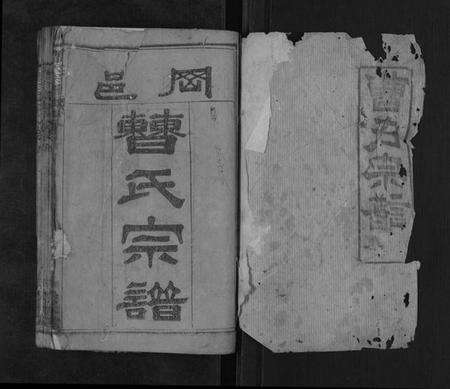 岡邑
曹氏宗譜
曹氏宗譜